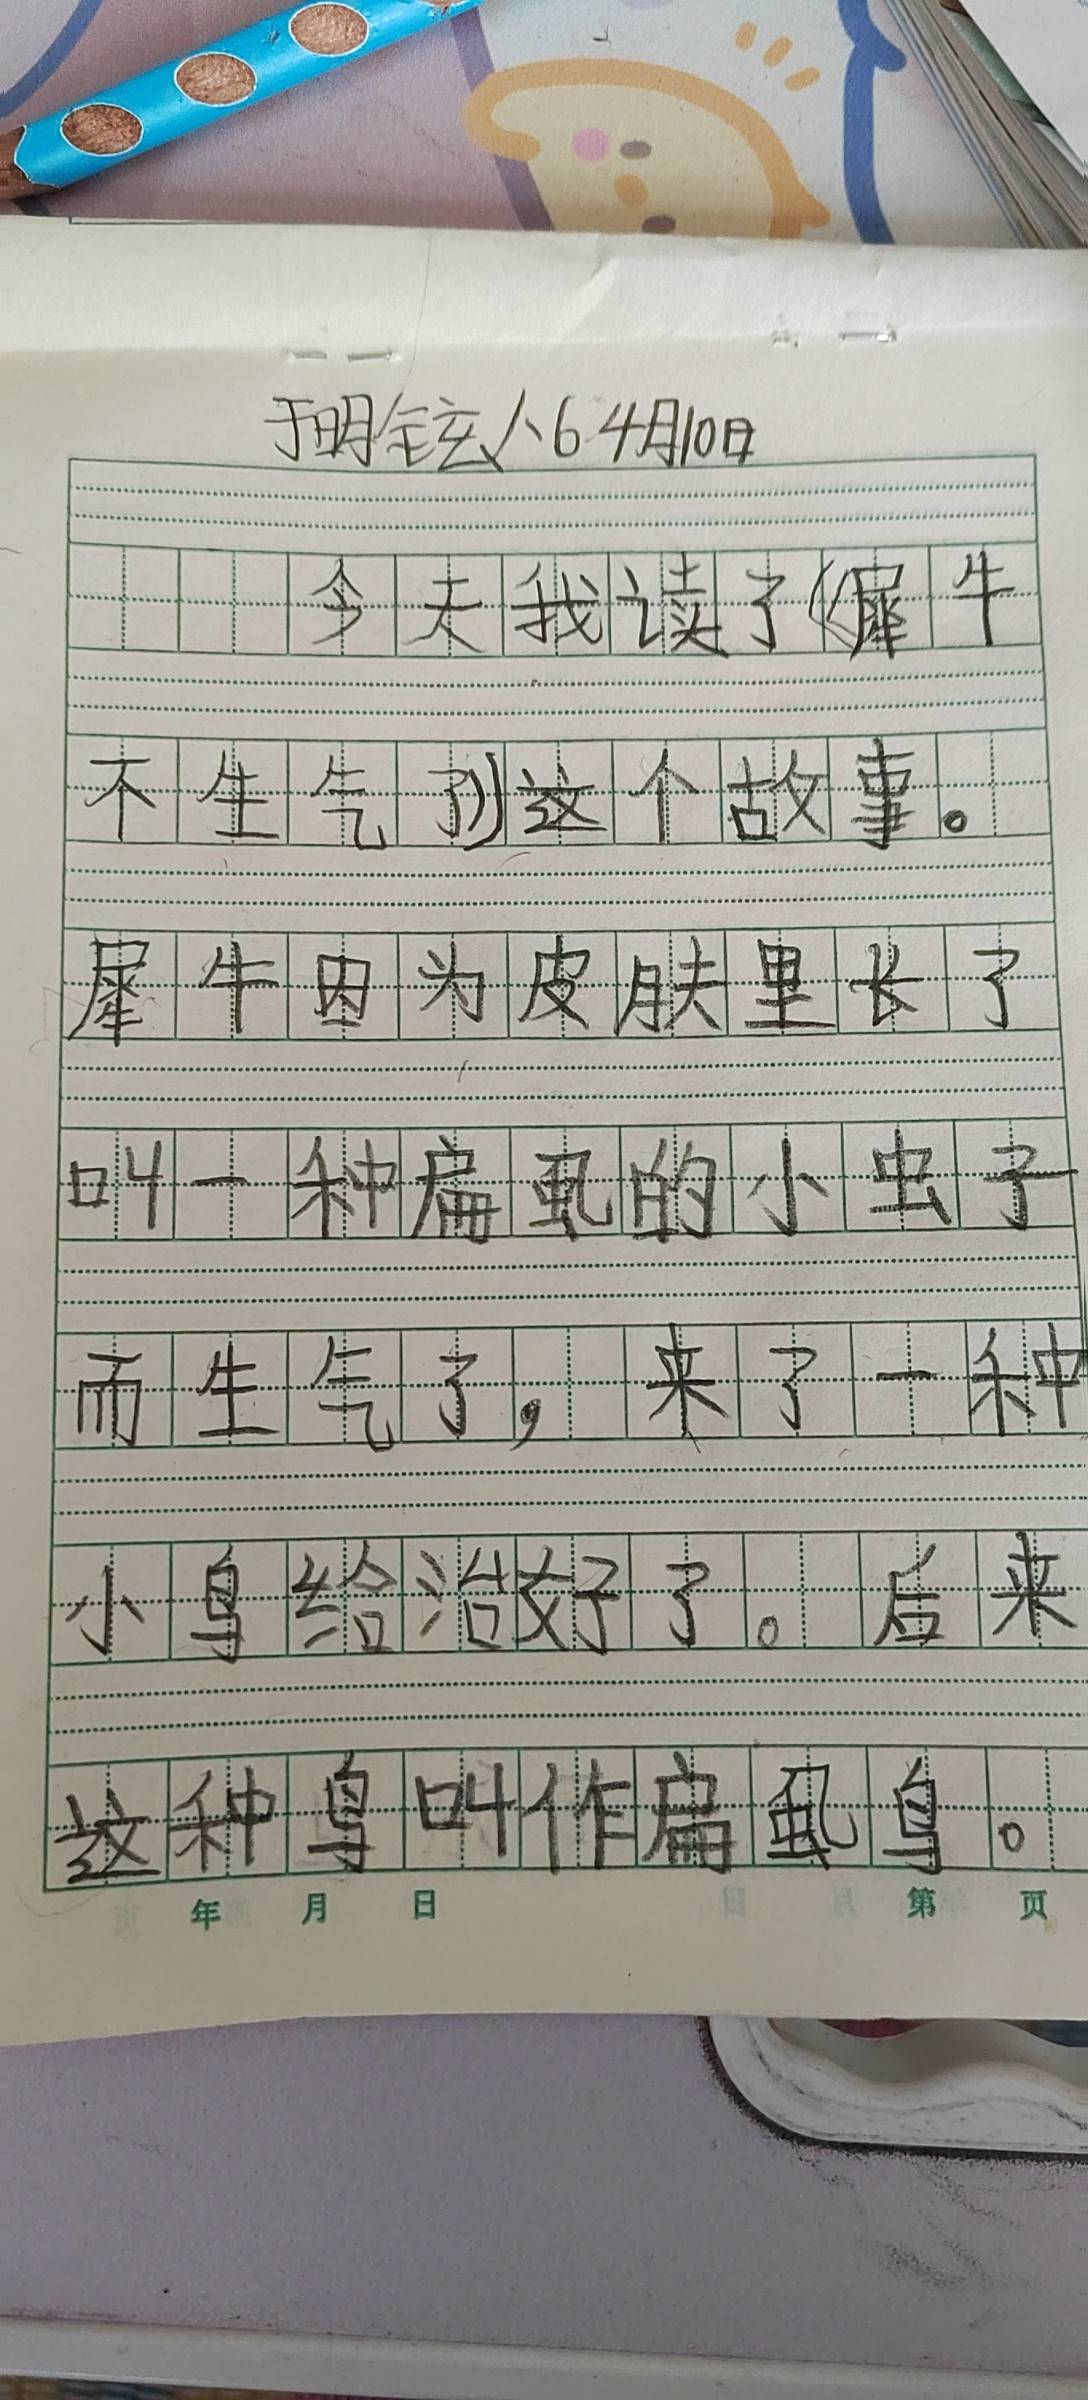 于明铉 八6 4月10日
今天我读了《犀牛
不生气了》这个故事。
犀牛因为皮肤里长了
叫一种扁虱的小虫子
而生气了，来了一种
小鸟给治好了。后来
这种鸟叫作扁虱鸟。
年 月 日 第 页